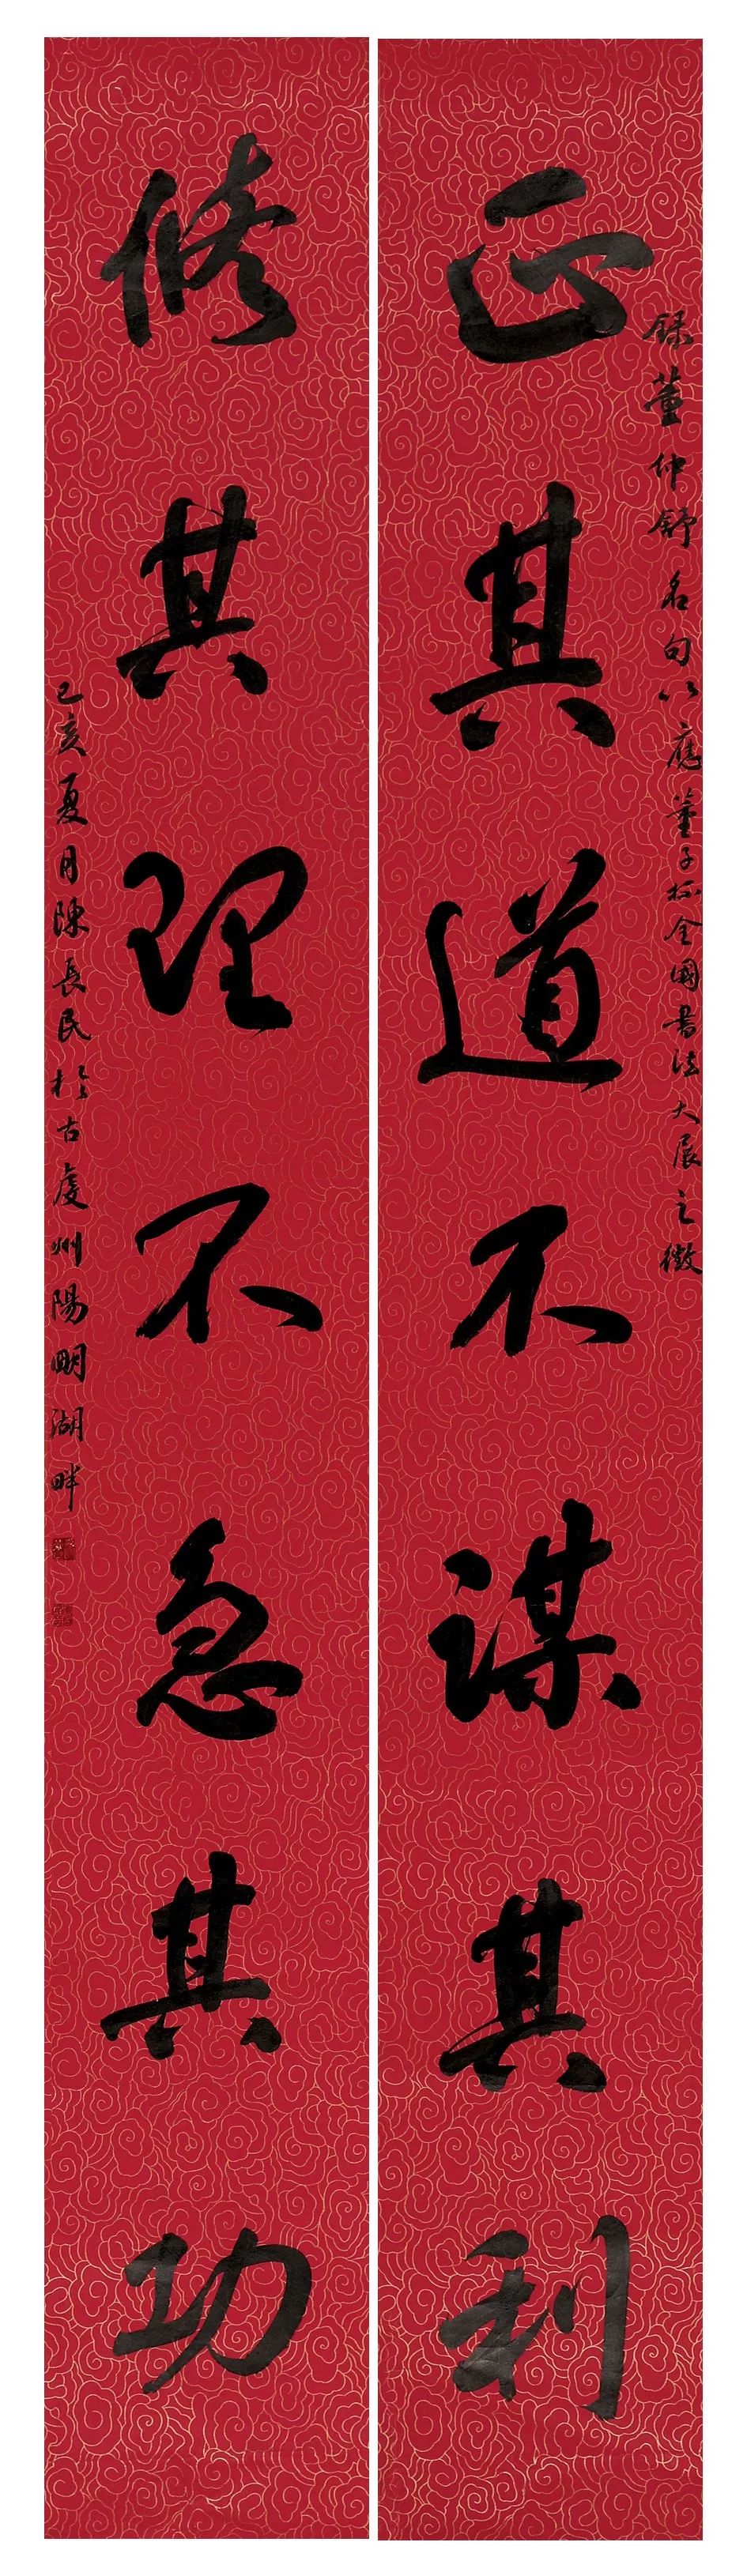 錄董仲舒名句以應董子杯全國書法大展之徵
正其道不謀其利
修其理不急其功
己亥夏月陳長民於古虔州陽明湖畔